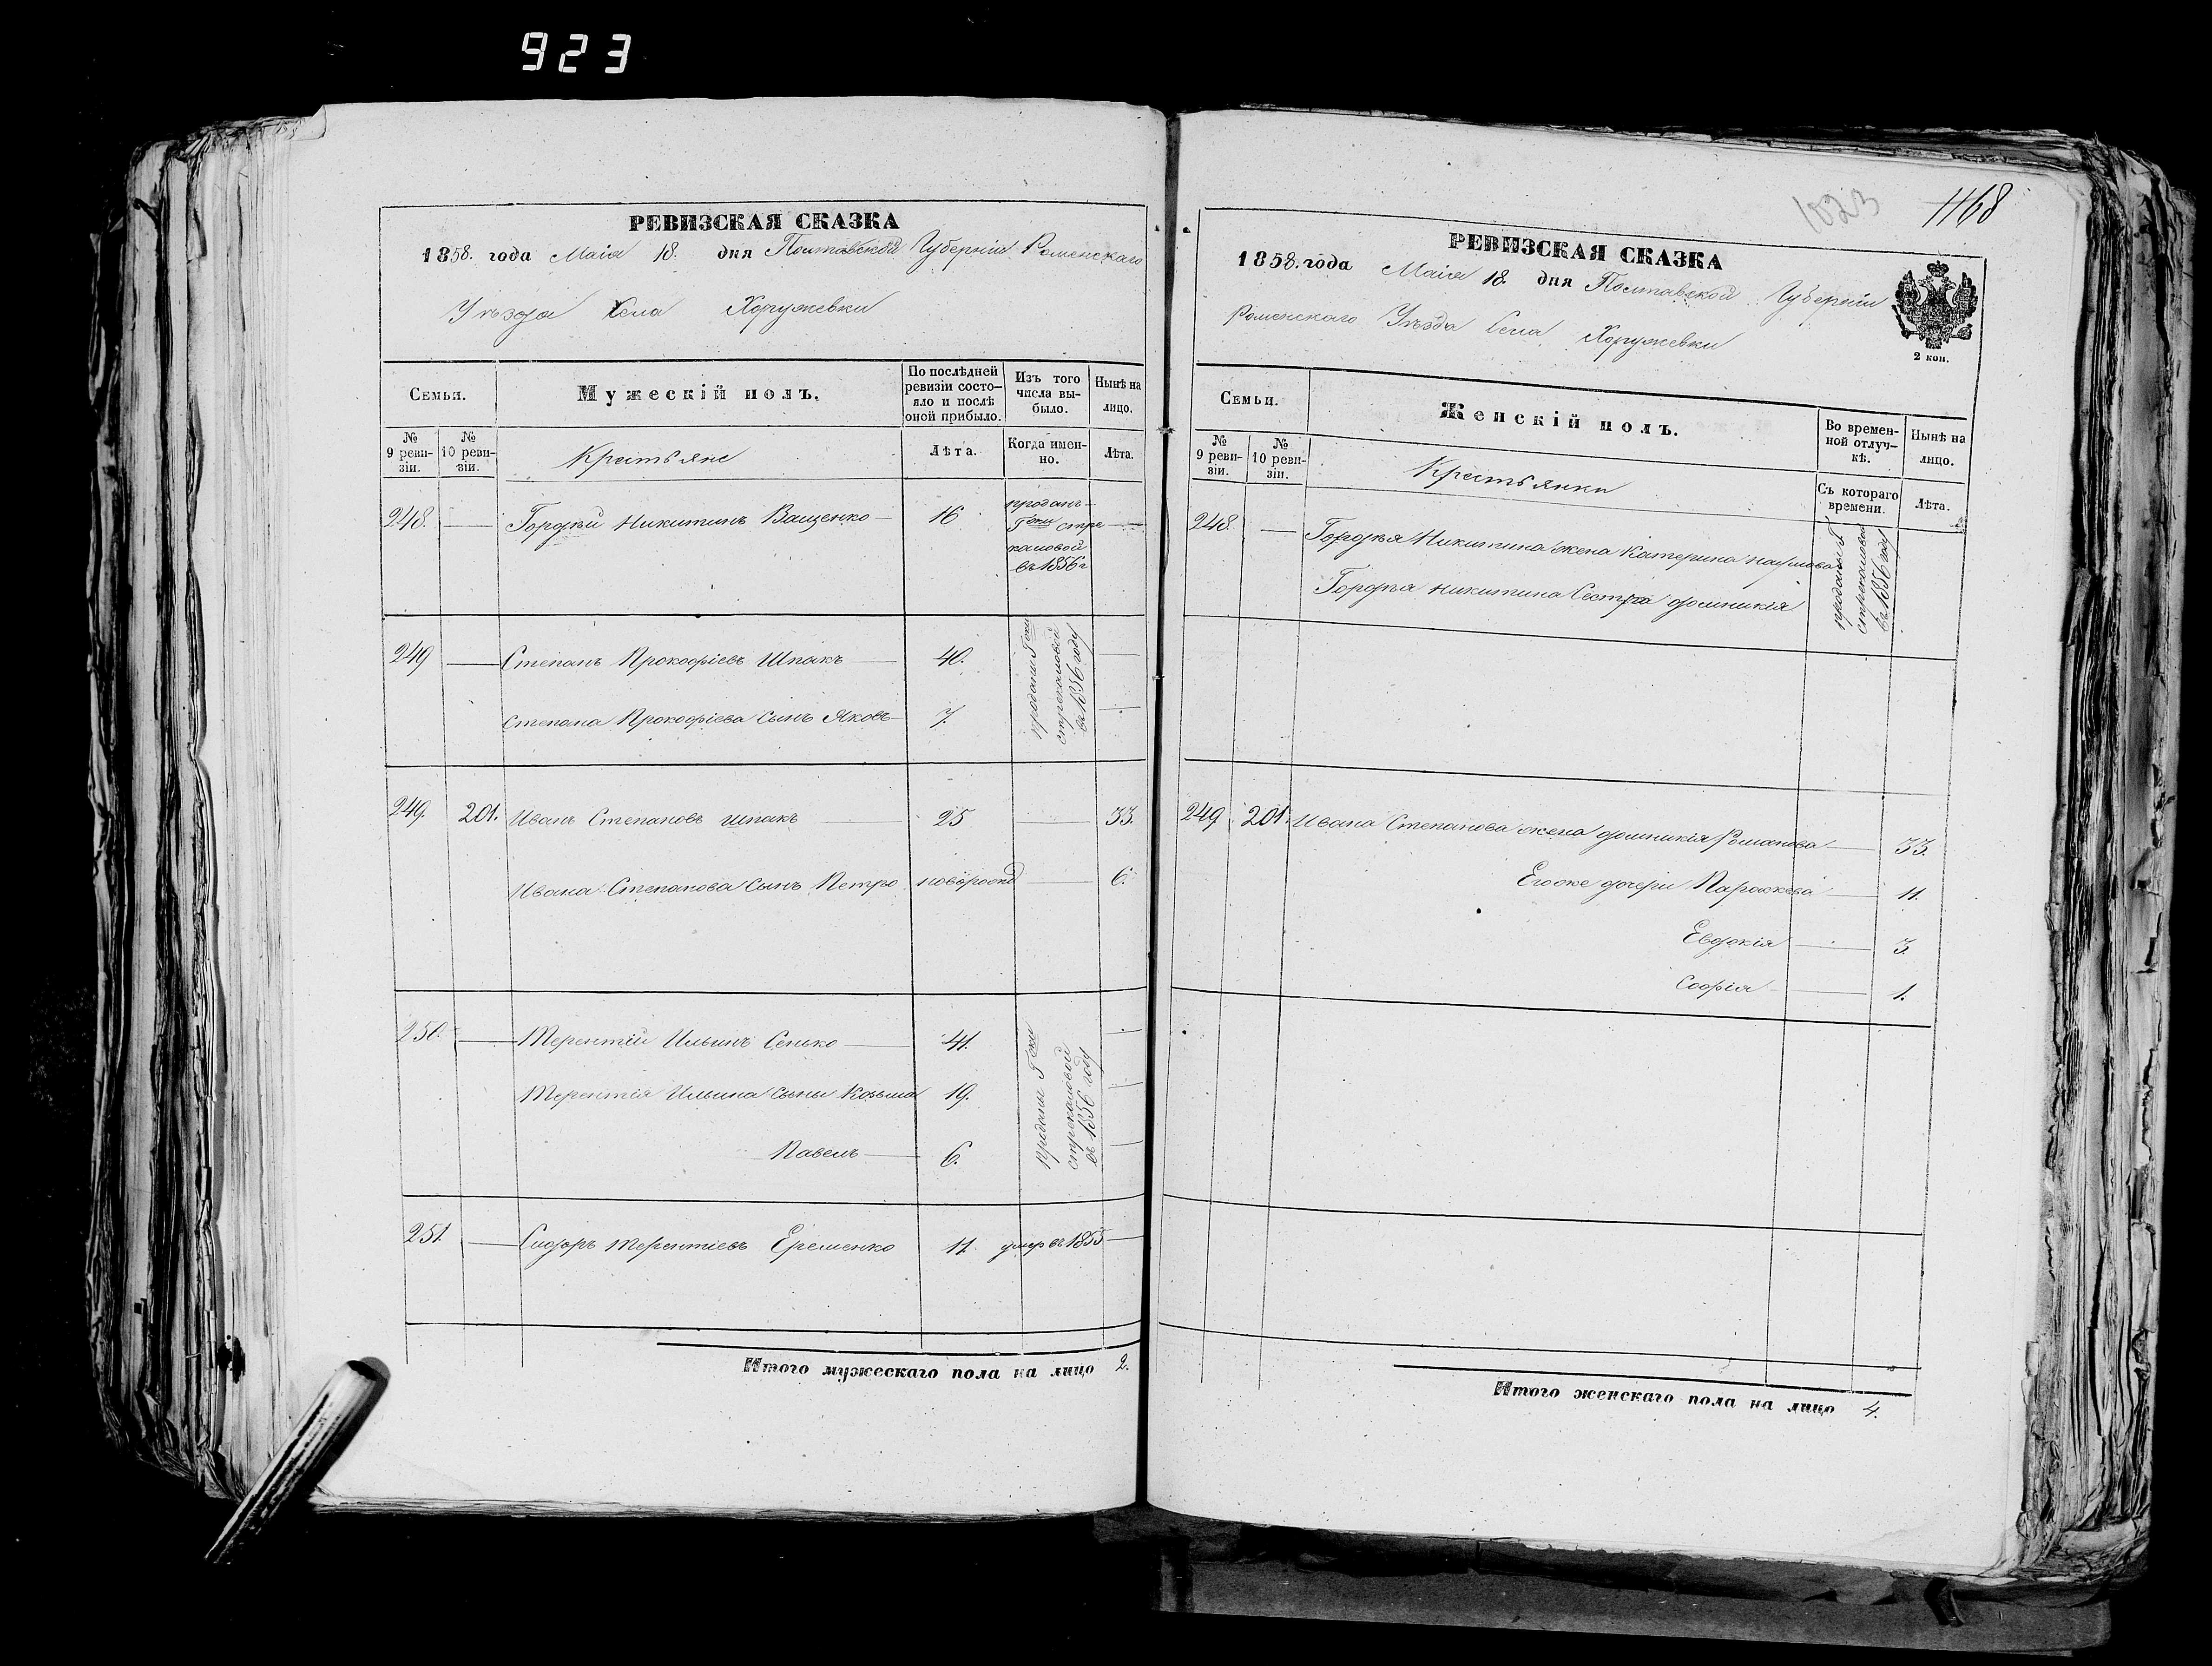 923
РЕВИЗСКАЯ СКАЗКА
1858. года Маія 18. дня Полтавской Губерніи Роменскаго
Уѣзда Села Хоружевки
Семьи.
Мужескій полъ.
По послѣдней ревизіи состояло и послѣ оной прибыло.
Изъ того числа выбыло.
Нынѣ на лицо.
№ 9 ревизіи.
№ 10 ревизіи.
Крестьяне
Лѣта.
Когда именно.
Лѣта.
248. — Гордѣй Никитинъ Ващенко — 16 проданъ Гжи Стрекаловой въ 1856 г —
249 — Степанъ Прокофіевъ Шпакъ — 40. —
Степана Прокофіева Сынъ Яковъ — 7. —
проданы Гжи Стрекаловой въ 1856 году
249. 201. Иванъ Степановъ Шпакъ — 25 — 33.
Ивана Степанова Сынъ Петро новорожд — 6.
250. — Терентій Ильинъ Сенко — 41. —
Терентія Ильина Сыны Козьма 19. —
Павелъ — 6. —
проданы Гжи Стрекаловой въ 1856 году
251. — Сидоръ Терентіевъ Еременко 11. умеръ въ 1855 —
Итого мужескаго пола на лицо 2.
1023
1168
РЕВИЗСКАЯ СКАЗКА
1858. года Маія 18. дня Полтавской Губерніи
Роменскаго Уѣзда Села Хоружевки
2 коп.
Семьи.
Женскій полъ.
Во временной отлучкѣ.
Нынѣ на лицо.
№ 9 ревизіи.
№ 10 ревизіи.
Крестьянки
Съ котораго времени.
Лѣта.
248. — Гордѣя Никитина жена Катерина Наумова
Гордѣя Никитина Сестра Домникія
проданы Г Стрекаловой въ 1856 году
249 201. Ивана Степанова жена Домникія Романова — 33.
Егоже дочери Параскева — 11.
Евдокія — 3.
Софія — 1.
Итого женскаго пола на лицо 4.